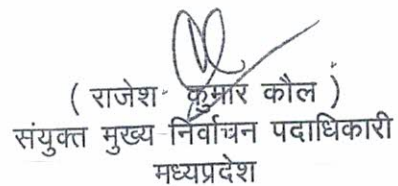 ( राजेश कुमार कौल )
संयुक्त मुख्य निर्वाचन पदाधिकारी
मध्यप्रदेश